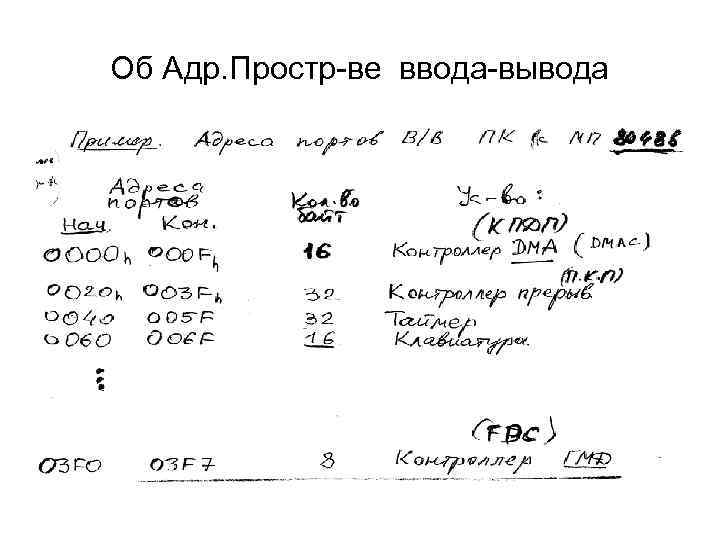 Об Адр.Простр-ве ввода-вывода
Пример. Адреса портов В/В ПК с МП 80486
Адреса портов Кол.во байт Ус-во:
Нач. Кон. (КПДП)
0000h 000Fh 16 Контроллер DMA (DMAC)
(П.К.П)
0020h 003Fh 32 Контроллер прерыв.
0040 005F 32 Таймер
0060 006F 16 Клавиатуры
(FDC)
03F0 03F7 8 Контроллер ГМД